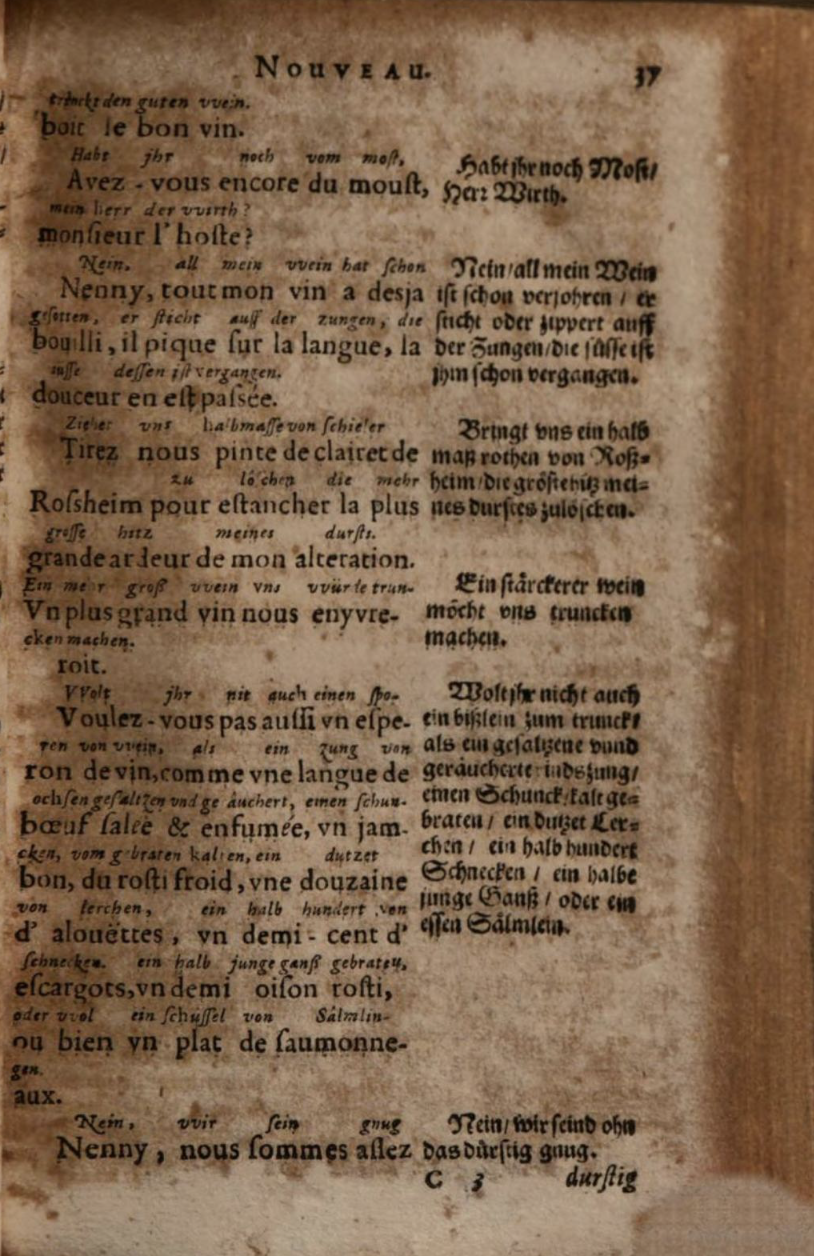 NOUVEAU. 37
trinckt den guten vvein.
boit le bon vin.
Habt jhr noch vom most,
Avez-vous encore du mouſt,
mein herr der vvirth?
monſieur l'hoſte?
Nein, all mein vvein hat ſchon
Nenny, tout mon vin a desja
geſotten, er ſticht auff der zungen, die
bouilli, il pique ſur la langue, la
ſuſſe deſſen iſt vergangen.
douceur en eſt paſsée.
Ziehet vns halbmaſſe von ſchieler
Tirez nous pinte de clairet de
zu löſchen die mehr
Roſsheim pour eſtancher la plus
groſſe hitz meines durſts.
grande ardeur de mon alteration.
Ein mehr groß vvein vns vvürde trun-
Vn plus grand vin nous enyvre-
cken machen.
roit.
VVolt jhr nit auch einen ſpo-
Voulez-vous pas auſſi vn eſpe-
ren von vvein, als ein zung von
ron de vin, comme vne langue de
ochſen geſaltzen vnd geräuchert, einen ſchun-
bœuf ſalée & enfumée, vn jam-
cken, vom gebraten kalten, ein dutzet
bon, du roſti froid, vne douzaine
von lerchen, ein halb hundert von
d' alouëttes, vn demi-cent d'
ſchnecken. ein halb junge ganß gebraten,
eſcargots, vn demi oiſon roſti,
oder vvol ein ſchüſſel von Sälmlin-
ou bien vn plat de ſaumonne-
gen.
aux.
Nein, vvir ſein gnug
Nenny, nous ſommes aſſez
Habt jhr noch Moſt/
Herr Wirth.
Nein/all mein Wein
iſt ſchon verjohren / er
ſticht oder zippert auff
der Zungen/die ſüſſe iſt
jhm ſchon vergangen.
Bringt vns ein halb
maß rothen von Roß-
heim/die gröſte hitz mei-
nes durſtes zulöſchen.
Ein ſtärckerer wein
möcht vns truncken
machen.
Wolt jhr nicht auch
ein bißlein zum trunck/
als ein geſaltzene vnnd
geräucherte rindszung/
einen Schunck/kalt ge-
braten / ein dutzet Ler-
chen / ein halb hundert
Schnecken / ein halbe
junge Ganß / oder ein
eſſen Sälmlein.
Nein/wir ſeind ohn
das dürſtig gnug.
C 3 durſtig